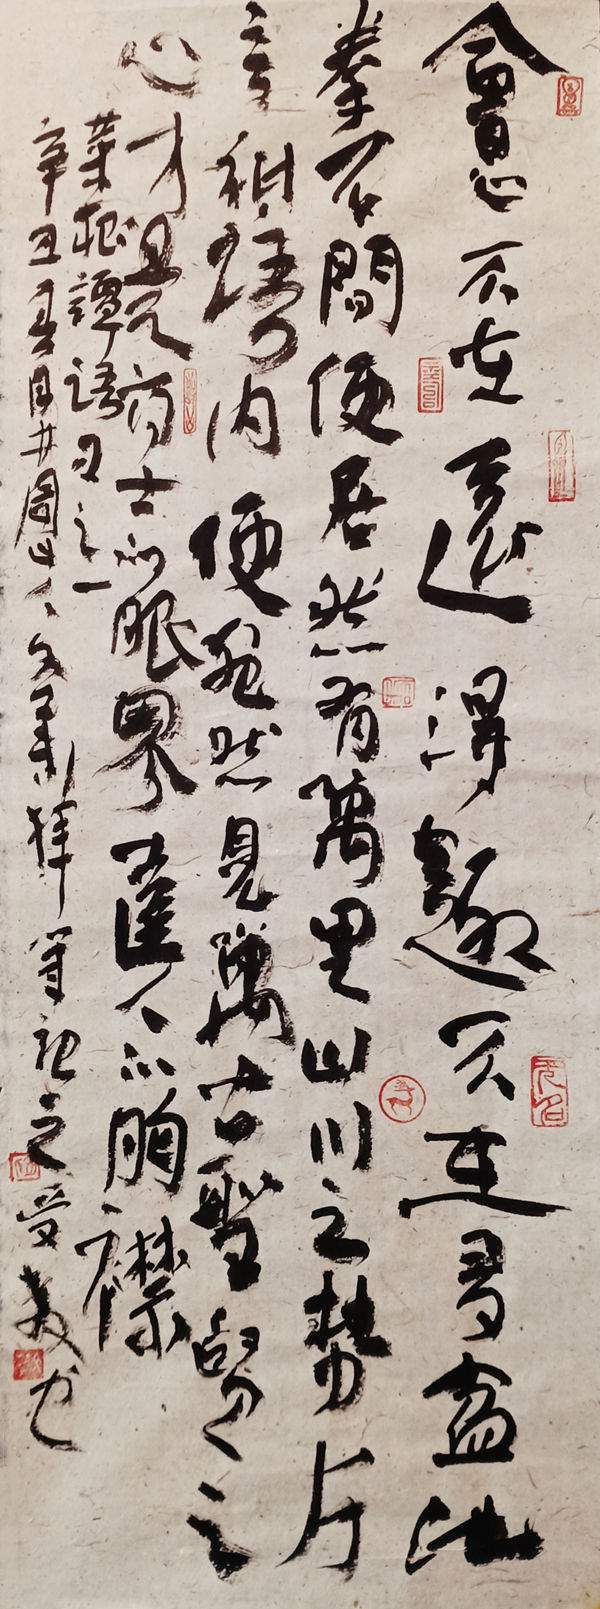 會心不在遠得趣不在多盆池
拳石間便居然有萬里山川之勢片
言語內便宛然見萬古聖賢之
心才是高士的眼界達人的胸襟
菜根譚語之一
辛丑春月井岡山人之受